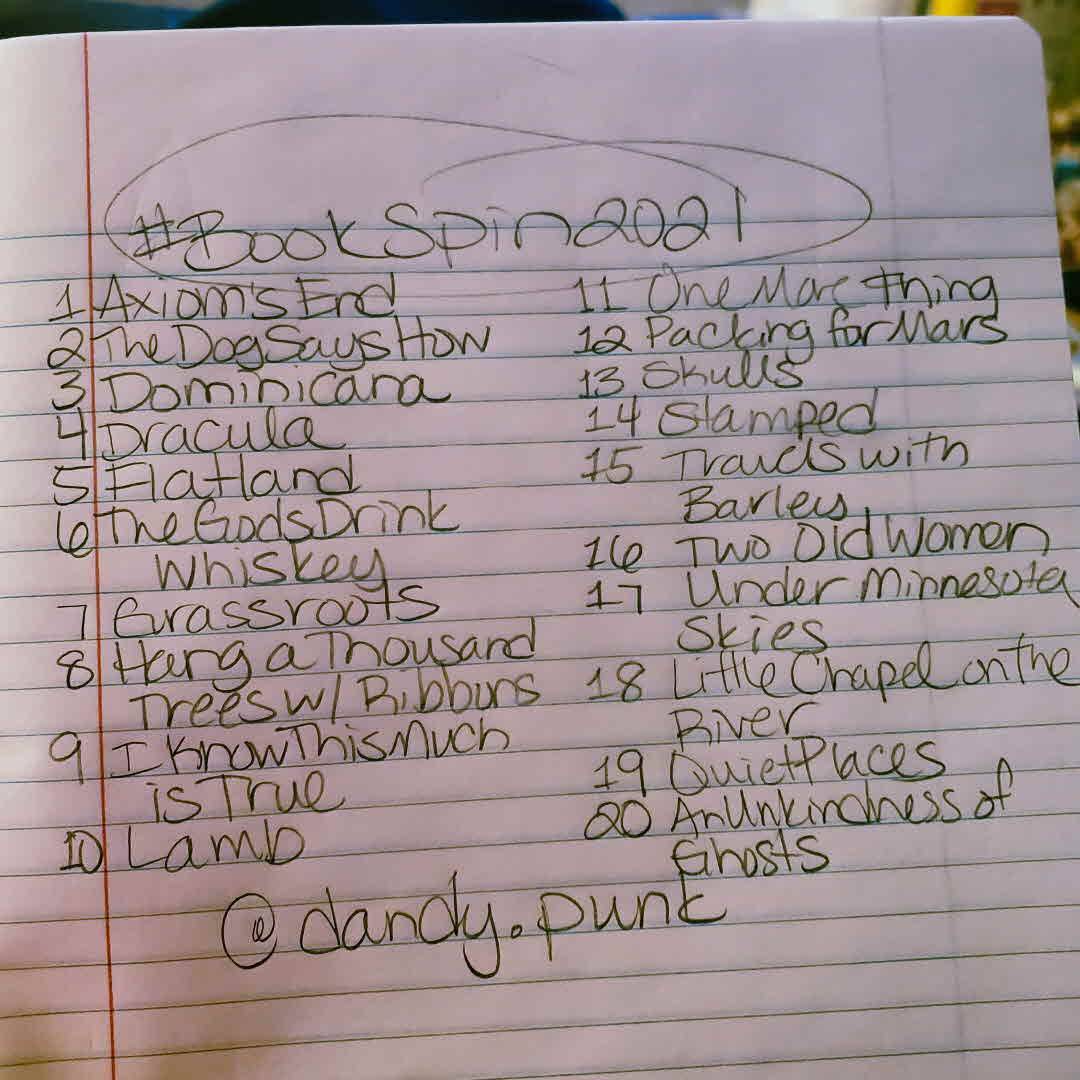 #BookSpin2021
1 Axiom's End
2 The Dog Says How
3 Dominicana
4 Dracula
5 Flatland
6 The Gods Drink
Whiskey
7 Grassroots
8 Hang a Thousand
Trees w/ Ribbons
9 I Know This Much
is True
10 Lamb
11 One More Thing
12 Packing for Mars
13 Skulls
14 Stamped
15 Travels with
Barley
16 Two Old Women
17 Under Minnesota
Skies
18 Little Chapel on the
River
19 Quiet Places
20 An Unkindness of
Ghosts
@dandy.punk